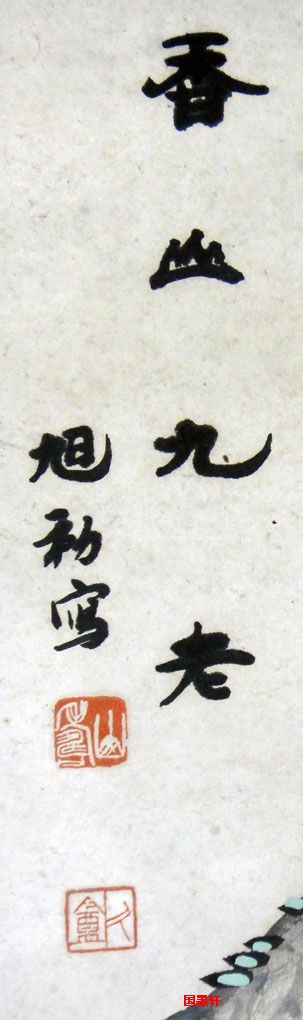 香山九老
旭初写
国墨轩